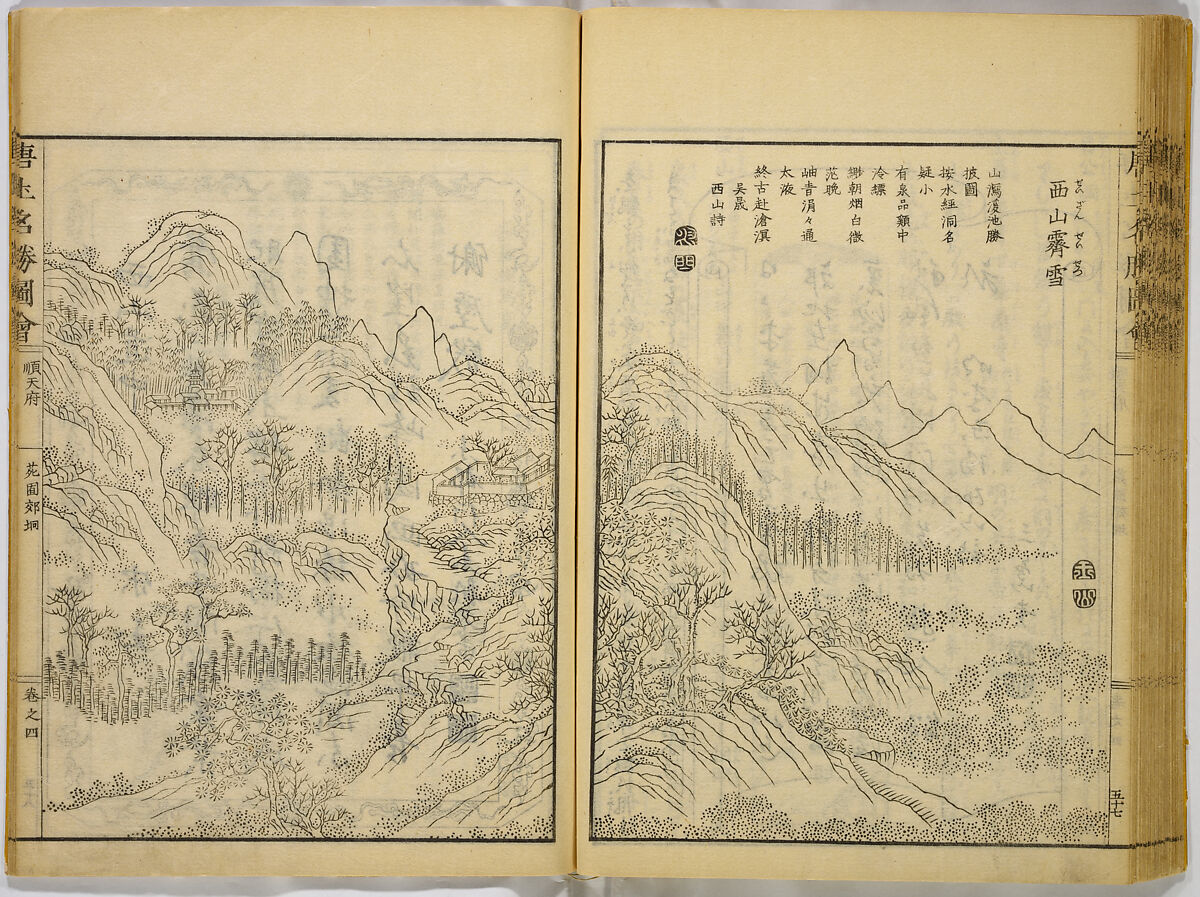 西山霽雪
せいざんせいせつ
山 池勝
披圖
按水經洞名
疑小
有泉品類中
泠縹
緲朝烟白微
茫晚
岫青涓々通
太液
終古赴滄溟
吴晟
西山詩
五十七
唐土名勝圖會
順天府
苑囿郊坰
卷之四